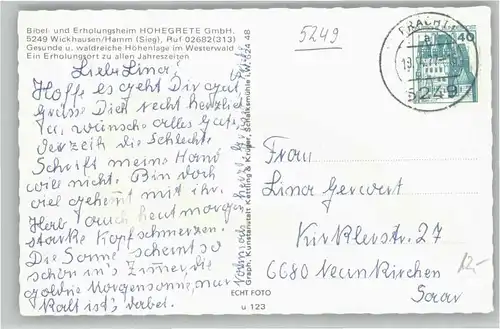 Bibel- und Erholungsheim HOHEGRETE GmbH.
5249 Wickhausen/Hamm (Sieg), Ruf 02682(313)
Gesunde u. waldreiche Höhenlage im Westerwald
Ein Erholungsort zu allen Jahreszeiten
Liebe Lina!
Hoffe es geht Dir gut
Grüsse Dich recht herzlich
wünsche alles Gute,
Verzeih die schlechte
Schrift meine Hand
will nicht. Bin doch
viel gehemt mit ihr.
Hab auch heut morgen
starke Kopfschmerzen.
Die Sonne scheint so
schön in's Zimmer, die
goldne Morgensonne, nur
Kalt ist's dabei.
Nochmals herzl.
Graph. Kunstanstalt Kettling & Krüger, Schalksmühle i.W. 524 48
ECHT FOTO
u 123
5249
PRACHT
5249
40
Frau
Lina Gewort
Kirklerstr. 27
6680 Neunkirchen
Saar
12,-